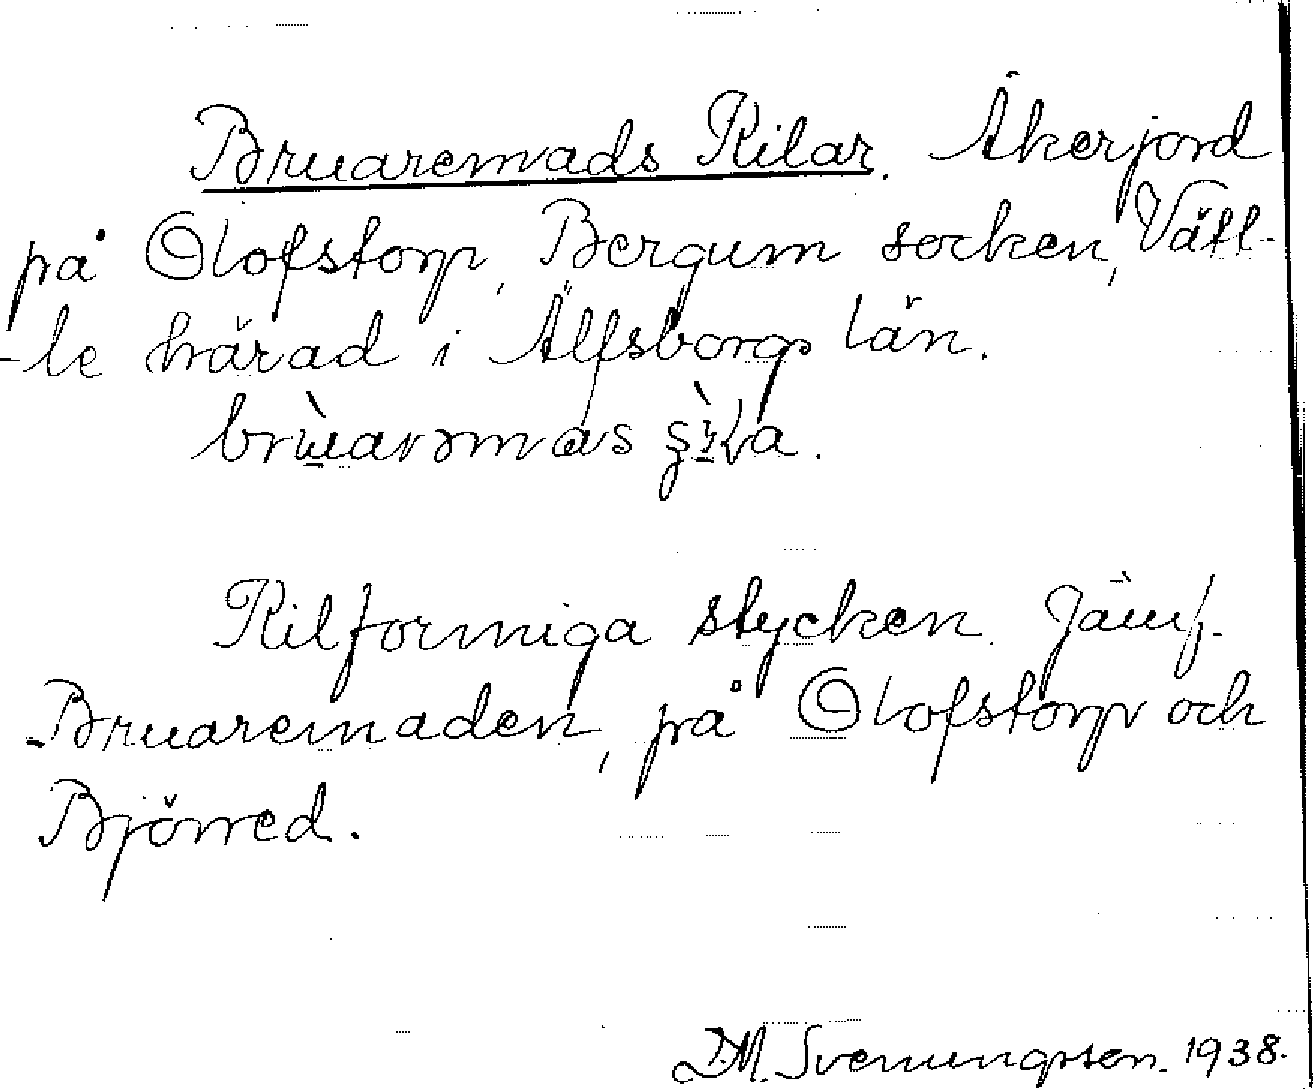 Bruaremads Kilar. Åkerjord
på Olofstorp, Bergum socken, Vätt-
-le härad i Älfsborgs län.
Kilformiga stycken. Jämf.
Bruaremaden, på Olofstorp och
Björred.
D.M. Svenungsson. 1938.